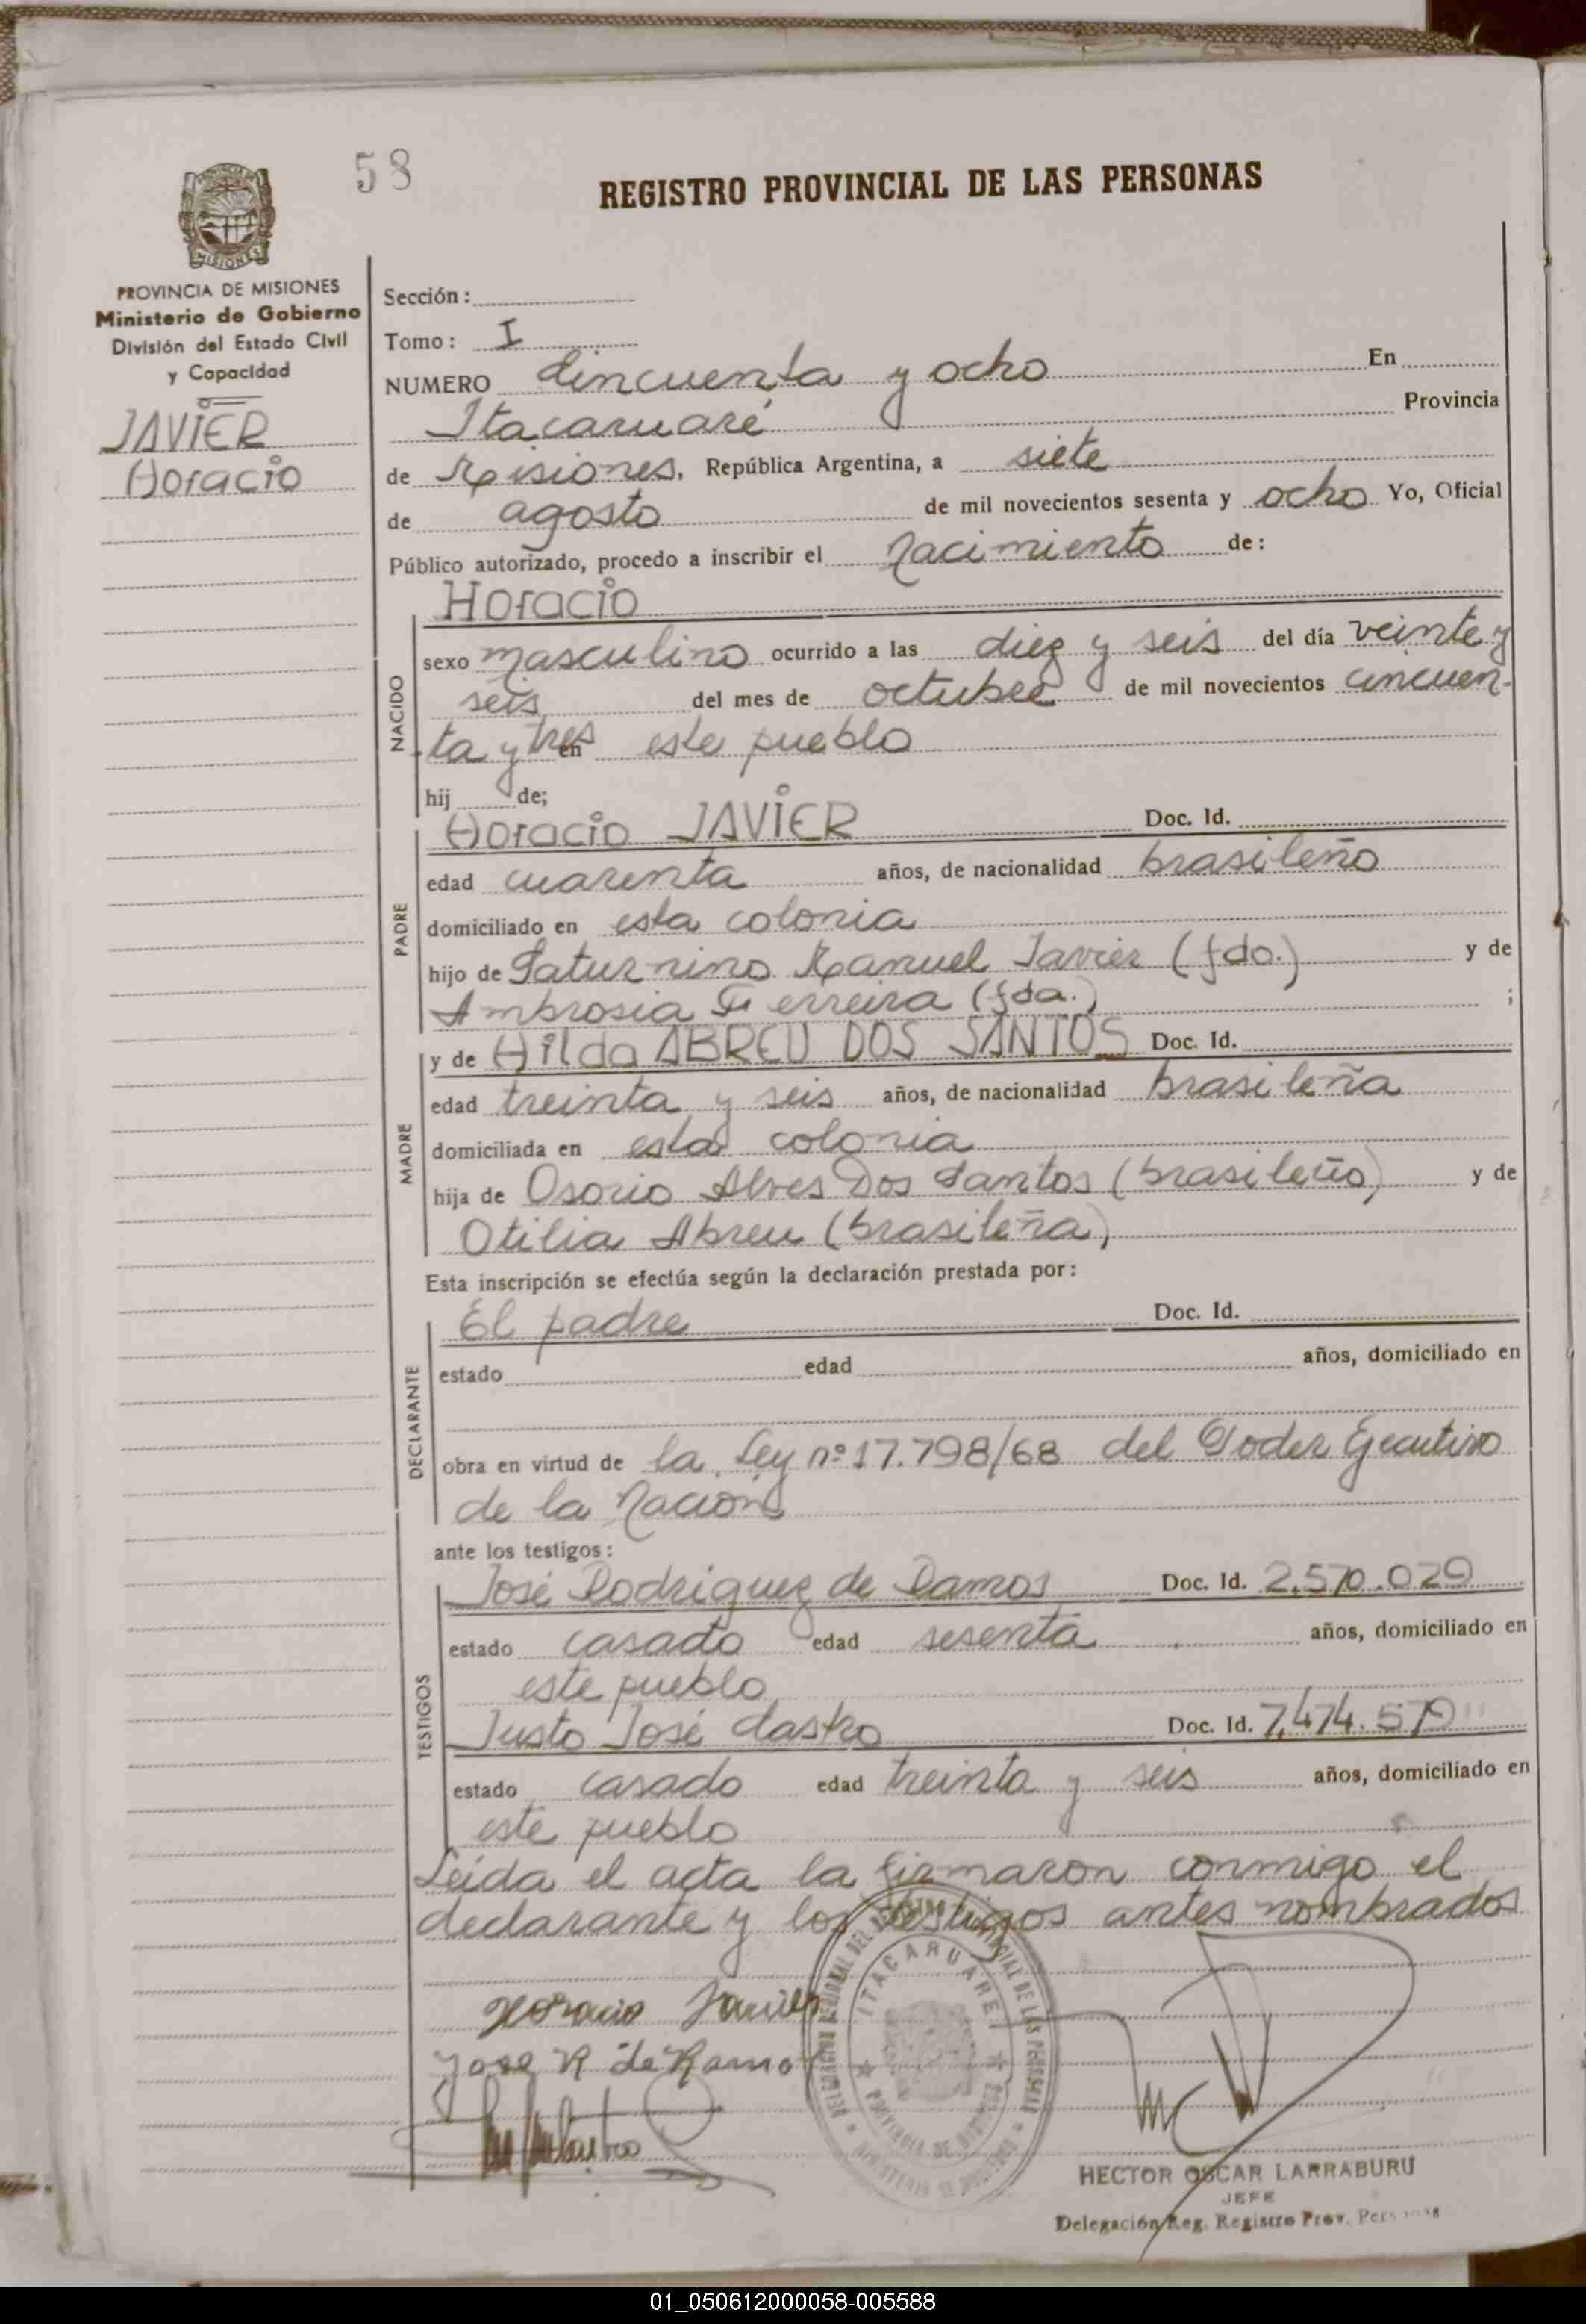 58
REGISTRO PROVINCIAL DE LAS PERSONAS
MISIONES
PROVINCIA DE MISIONES
Ministerio de Gobierno
División del Estado Civil
y Capacidad
JAVIER
Horacio
Sección:
Tomo: I
NUMERO Cincuenta y ocho En
Itacaruaré Provincia
de Misiones, República Argentina, a siete
de agosto de mil novecientos sesenta y ocho Yo, Oficial
Público autorizado, procedo a inscribir el Nacimiento de:
NACIDO
Horacio
sexo masculino ocurrido a las diez y seis del día veinte y
seis del mes de octubre de mil novecientos cincuen-
ta y tres en este pueblo
hij de;
PADRE
Horacio JAVIER Doc. Id.
edad cuarenta años, de nacionalidad brasileño
domiciliado en esta colonia
hijo de Saturnino Manuel Javier (fdo.) y de
Ambrosia Ferreira (fda.) ;
MADRE
y de Hilda ABREU DOS SANTOS Doc. Id.
edad treinta y seis años, de nacionalidad brasileña
domiciliada en esta colonia
hija de Osorio Alves Dos Santos (brasileño) y de
Otilia Abreu (brasileña)
Esta inscripción se efectúa según la declaración prestada por:
DECLARANTE
El padre Doc. Id.
estado edad años, domiciliado en
obra en virtud de la Ley nº 17.798/68 del Poder Ejecutivo
de la Nación
ante los testigos:
TESTIGOS
José Rodriguez de Ramos Doc. Id. 2.570.029
estado casado edad sesenta años, domiciliado en
este pueblo
Justo José Castro Doc. Id. 7.474.579
estado casado edad treinta y seis años, domiciliado en
este pueblo
Leída el acta la firmaron conmigo el
declarante y los testigos antes nombrados
Horacio Javier
Jose R de Ramos
ITACARUARE
HECTOR OSCAR LARRABURU
JEFE
Delegación Reg. Registro Prov. Personas
01_050612000058-005588